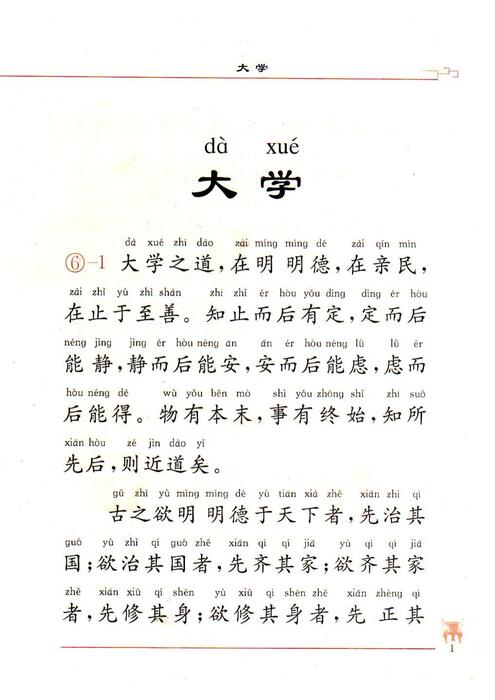 大学
dà xué
大学
dà xué zhī dào zài míng míng dé zài qīn mín
⑥-1 大学之道,在明 明德,在亲民,
zài zhǐ yú zhì shàn zhǐ zhǐ ér hòu yǒu dìng dìng ér hòu
在止于至善。知止而后有定,定而后
néng jìng jìng ér hòu néng ān ān ér hòu néng lǜ lǜ ér
能静,静而后能安,安而后能虑,虑而
hòu néng dé wù yǒu běn mò shì yǒu zhōng shǐ zhī suǒ
后能得。物有本末,事有终始,知所
xiān hòu zé jìn dào yǐ
先后,则近道矣。
gǔ zhī yù míng míng dé yú tiān xià zhě xiān zhì qí
古之欲明 明德于天下者,先治其
guó yù zhì qí guó zhě xiān qí qí jiā yù qí qí jiā
国;欲治其国者,先齐其家;欲齐其家
zhě xiān xiū qí shēn yù xiū qí shēn zhě xiān zhèng qí
者,先修其身;欲修其身者,先 正其
1